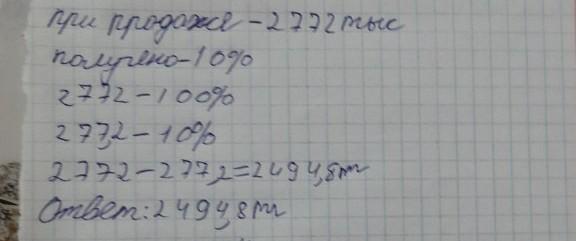 при продаже - 2772 тыс
получено - 10%
2772 - 100%
277,2 - 10%
2772 - 277,2 = 2494,8 т
Ответ: 2494,8 т